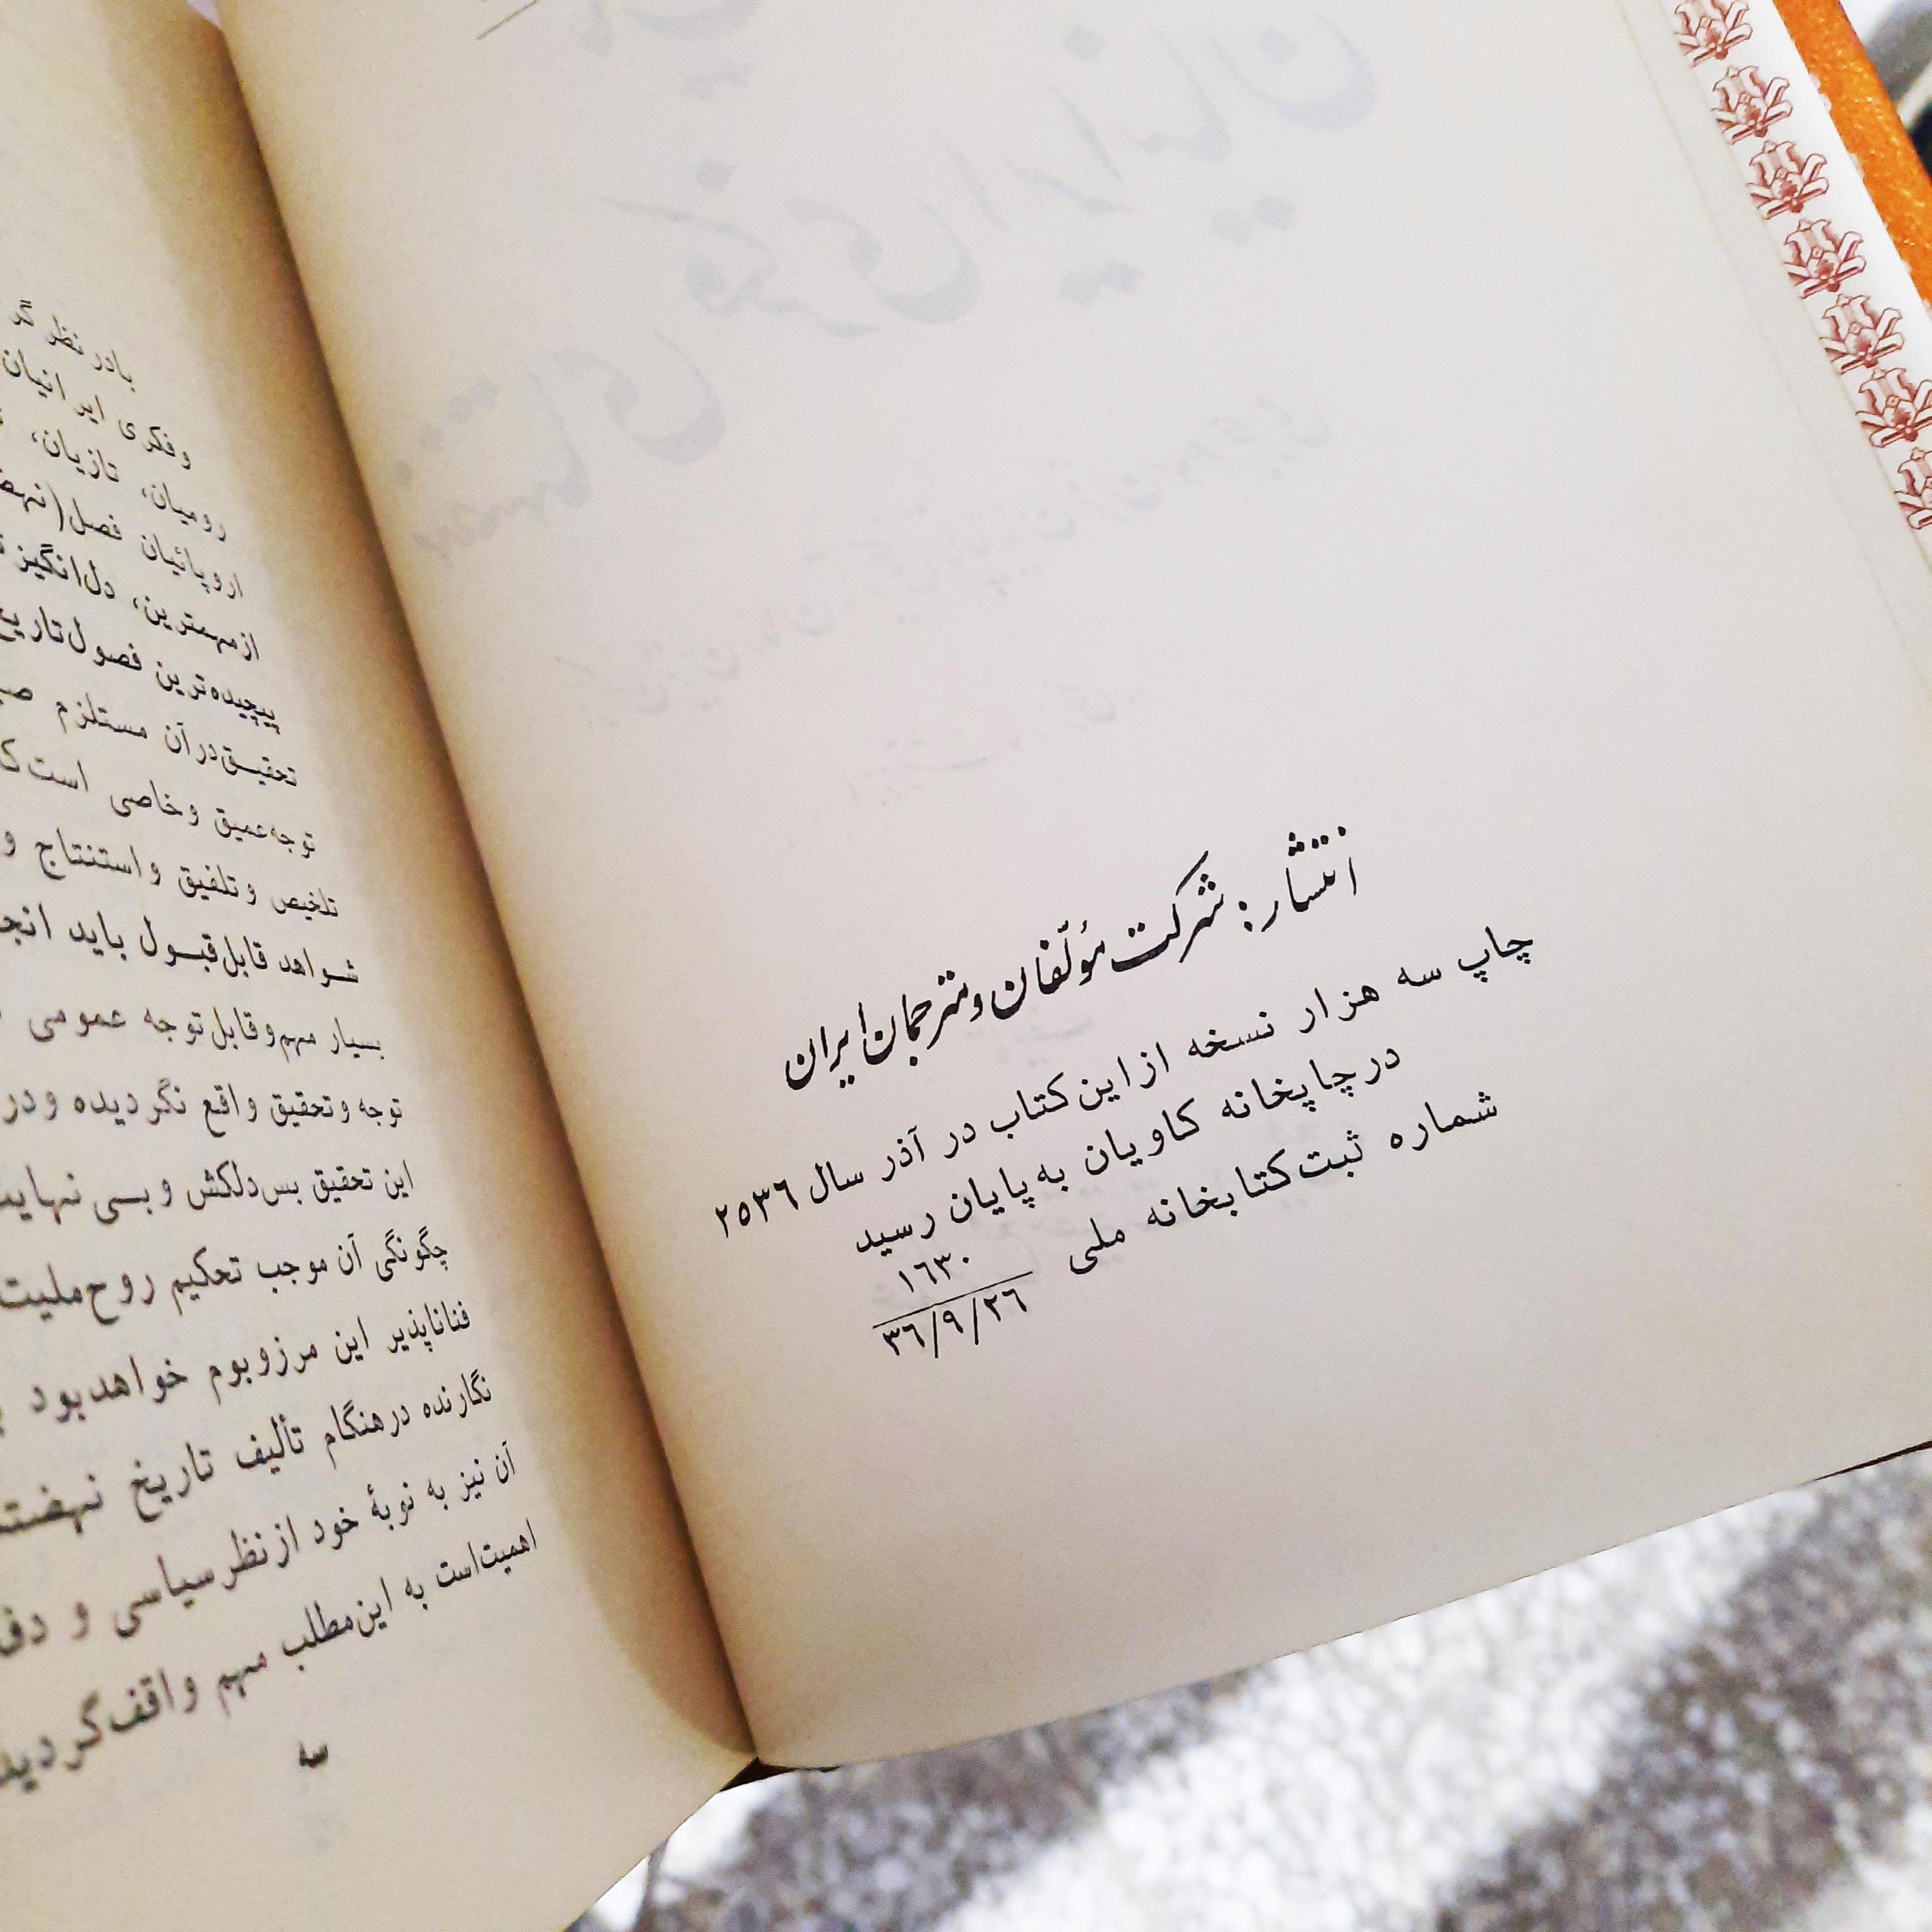 انتشار: شرکت مؤلّفان و مترجمان ایران
چاپ سه هزار نسخه از این کتاب در آذر سال ۲۵۳۶
در چاپخانه کاویان به پایان رسید
شماره ثبت کتابخانه ملی ۱۶۳۰
۳۶/۹/۲۶
بادر نظر
وفکری ایرانیان
رومیان، تازیان،
اروپائیان فصل
ازمهمترین، دل‌انگیز
پیچیده‌ترین فصول تاریخ
تحقیق درآن مستلزم
توجه عمیق وخاصی است
تلخیص وتلفیق واستنتاج و
شواهد قابل قبول باید
بسیار مهم وقابل توجه عمومی
توجه وتحقیق واقع نگردیده ودر
این تحقیق بس دلکش وبسی
چگونگی آن موجب تحکیم روح ملیت
فناناپذیر این مرزوبوم خواهدبود
نگارنده درهنگام تألیف تاریخ
آن نیز به نوبهٔ خود ازنظر سیاسی و
اهمیت است به این مطلب مهم واقف
سه